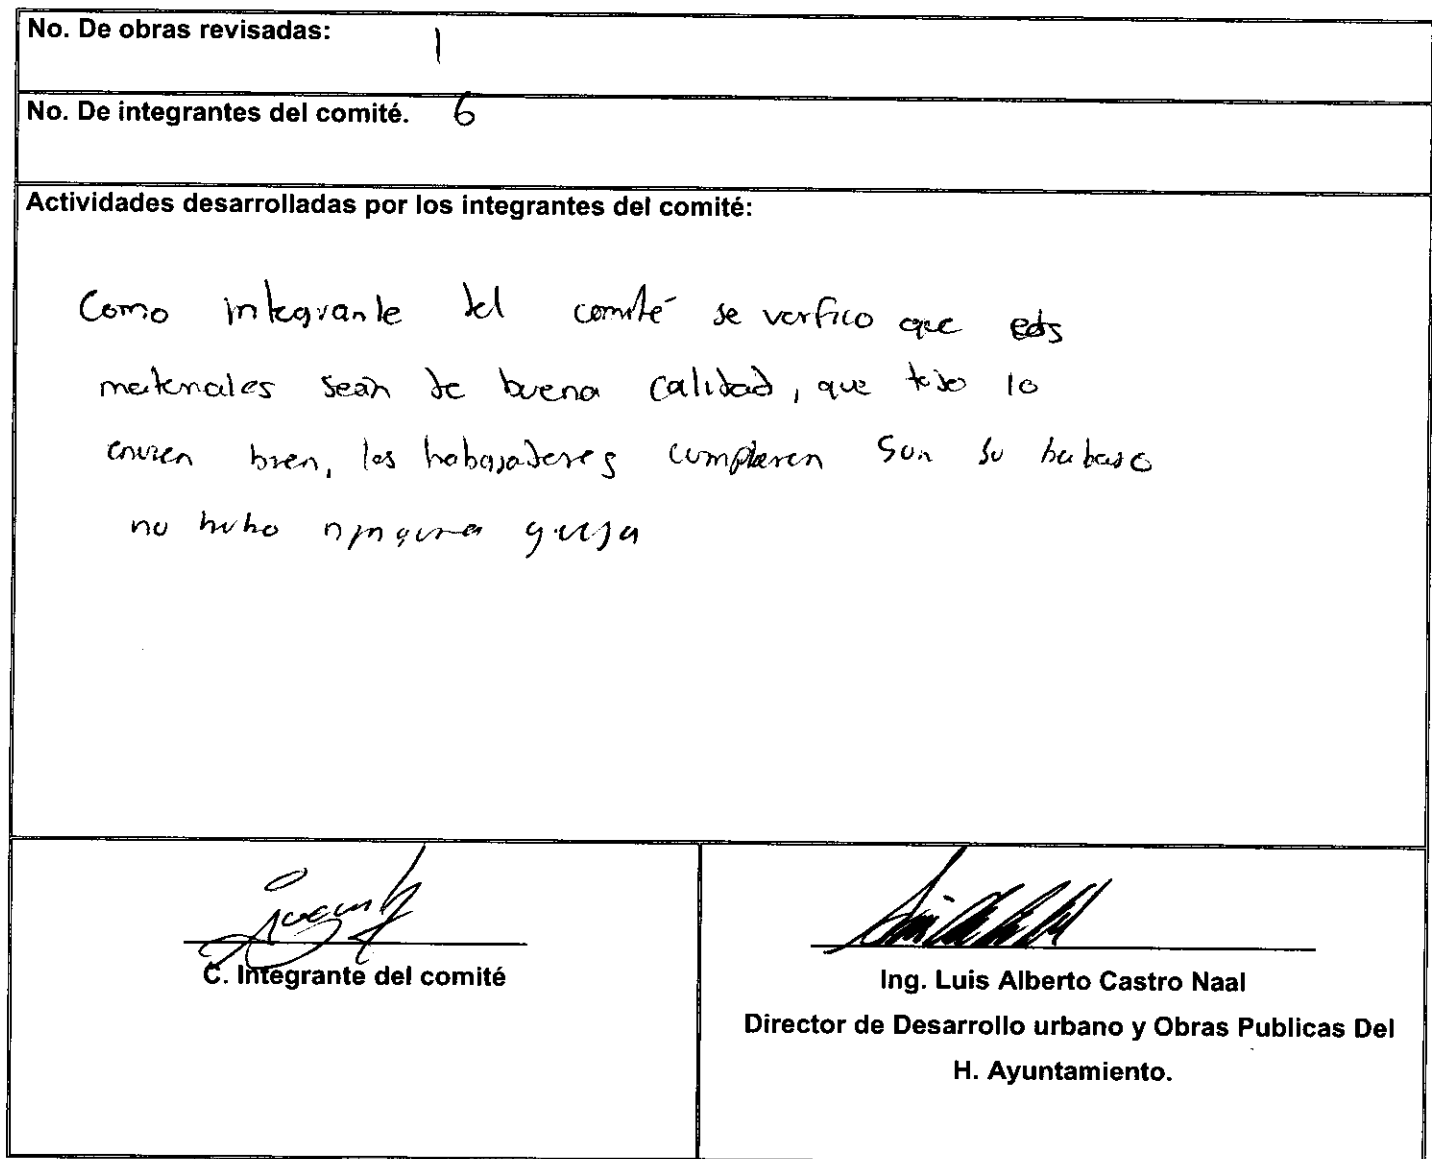 No. De obras revisadas: 1
No. De integrantes del comité. 6
Actividades desarrolladas por los integrantes del comité:
Como integrante del comité se verfico que
materiales sean de buena calidad, que todo lo
envien bien, los trabajadores cumplieren su trabajo
no hubo ninguna queja
C. Integrante del comité
Ing. Luis Alberto Castro Naal
Director de Desarrollo urbano y Obras Publicas Del
H. Ayuntamiento.